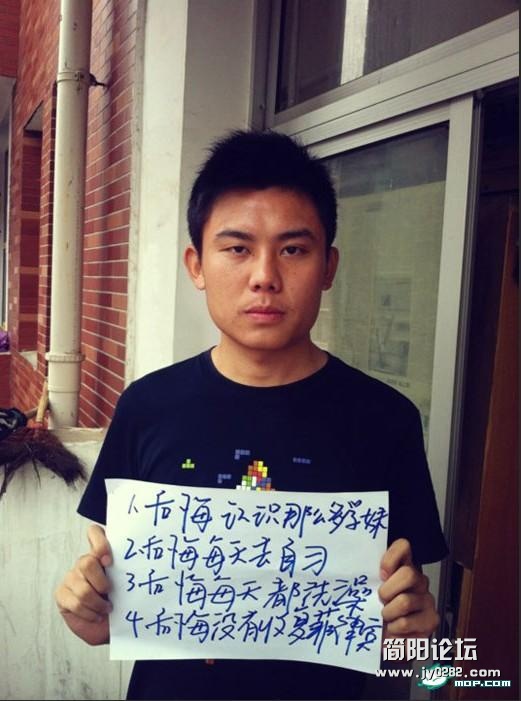 1.后悔认识那么多学妹
2.后悔每天去自习
3后悔每天都洗澡
4.后悔没有收
简阳论坛
www.jy0282.com
MOP.COM